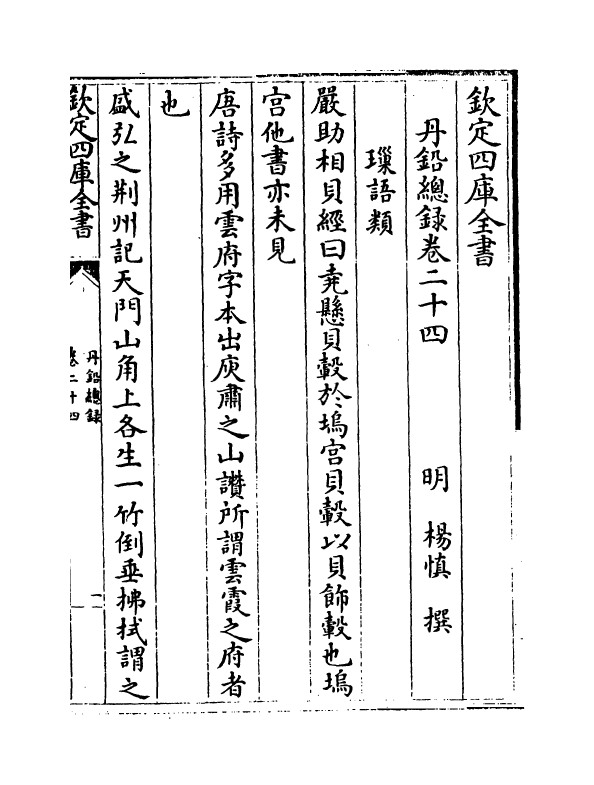 欽定四庫全書
丹鉛總録卷二十四
明 楊慎 撰
璅語類
嚴助相貝經曰堯懸貝轂於塢宫貝轂以貝飾轂也塢
宫他書亦未見
唐詩多用雲府字本出庾肅之山讚所謂雲霞之府者
也
盛弘之荆州記天門山角上各生一竹倒垂拂拭謂之
欽定四庫全書
丹鉛總録
卷二十四
一